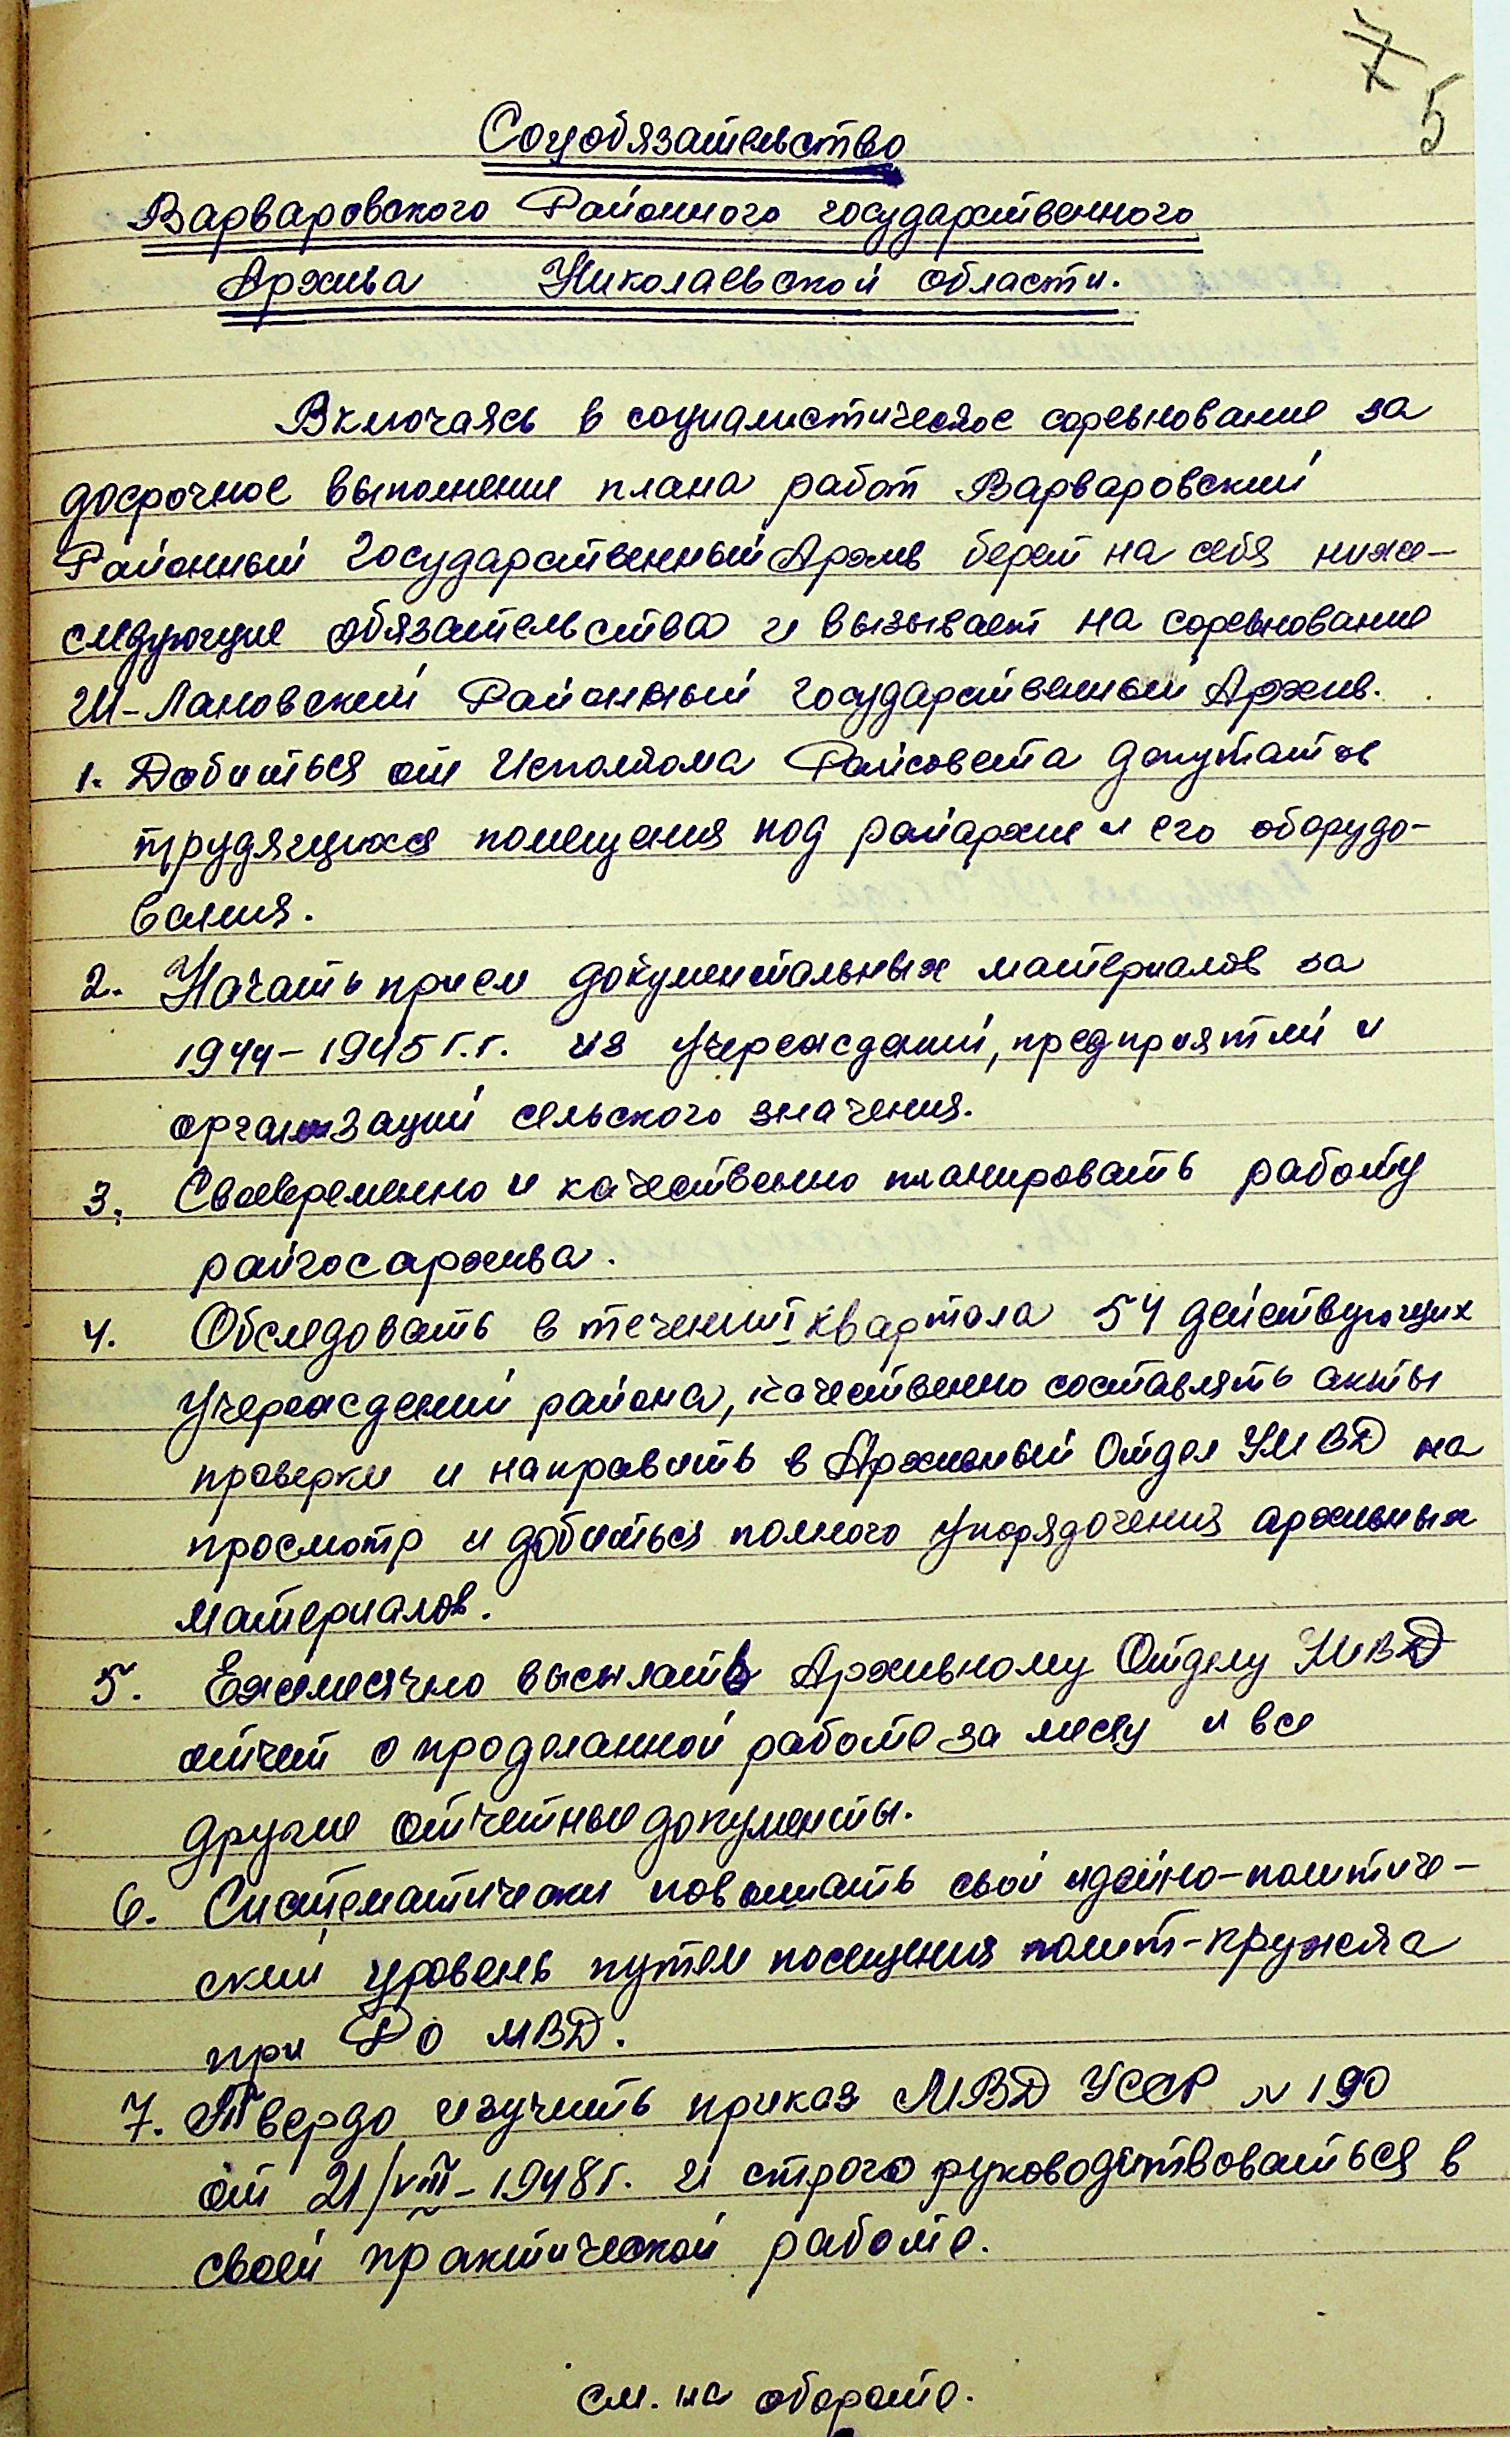 7
5
Соцобязательство
Варваровского Районного государственного
Архива Николаевской области.
Включаясь в социалистическое соревнование за
досрочное выполнение плана работ Варваровский
Районный Государственный Архив берет на себя ниже-
следующие обязательства и вызывает на соревнование
Ш-Лановский Районный государственный Архив.
1. Добиться от Исполкома Райсовета депутатов
трудящихся помещения под райархив и его оборудо-
вания.
2. Начать прием документальных материалов за
1944-1945 г.г. из учреждений, предприятий и
организаций сельского значения.
3. Своевременно и качественно планировать работу
райгосархива.
4. Обследовать в течении I квартала 54 действующих
учреждений района, качественно составлять акты
проверки и направить в Архивный Отдел УМВД на
просмотр и добиться полного упорядочения архивных
материалов.
5. Ежемесячно высылать Архивному Отделу УМВД
отчет о проделанной работе за месяц и все
другие отчетные документы.
6. Систематически повышать свой идейно-политиче-
ский уровень путем посещения полит-кружка
при РО МВД.
7. Твердо изучить приказ МВД УССР № 190
от 21/VIII-1948 г. и строго руководствоваться в
своей практической работе.
см. на обороте.